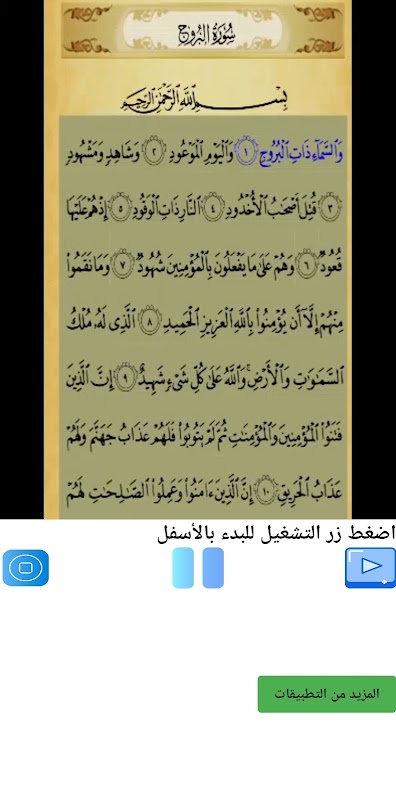 سُورَةُ البُرُوج
بِسْمِ ٱللَّهِ ٱلرَّحْمَٰنِ ٱلرَّحِيمِ
وَٱلسَّمَآءِ ذَاتِ ٱلْبُرُوجِ ١ وَٱلْيَوْمِ ٱلْمَوْعُودِ ٢ وَشَاهِدٍ وَمَشْهُودٍ
٣ قُتِلَ أَصْحَٰبُ ٱلْأُخْدُودِ ٤ ٱلنَّارِ ذَاتِ ٱلْوَقُودِ ٥ إِذْ هُمْ عَلَيْهَا
قُعُودٌ ٦ وَهُمْ عَلَىٰ مَا يَفْعَلُونَ بِٱلْمُؤْمِنِينَ شُهُودٌ ٧ وَمَا نَقَمُوا۟
مِنْهُمْ إِلَّآ أَن يُؤْمِنُوا۟ بِٱللَّهِ ٱلْعَزِيزِ ٱلْحَمِيدِ ٨ ٱلَّذِى لَهُۥ مُلْكُ
ٱلسَّمَٰوَٰتِ وَٱلْأَرْضِ ۚ وَٱللَّهُ عَلَىٰ كُلِّ شَىْءٍ شَهِيدٌ ٩ إِنَّ ٱلَّذِينَ
فَتَنُوا۟ ٱلْمُؤْمِنِينَ وَٱلْمُؤْمِنَٰتِ ثُمَّ لَمْ يَتُوبُوا۟ فَلَهُمْ عَذَابُ جَهَنَّمَ وَلَهُمْ
عَذَابُ ٱلْحَرِيقِ ١٠ إِنَّ ٱلَّذِينَ ءَامَنُوا۟ وَعَمِلُوا۟ ٱلصَّٰلِحَٰتِ لَهُمْ
اضغط زر التشغيل للبدء بالأسفل
المزيد من التطبيقات